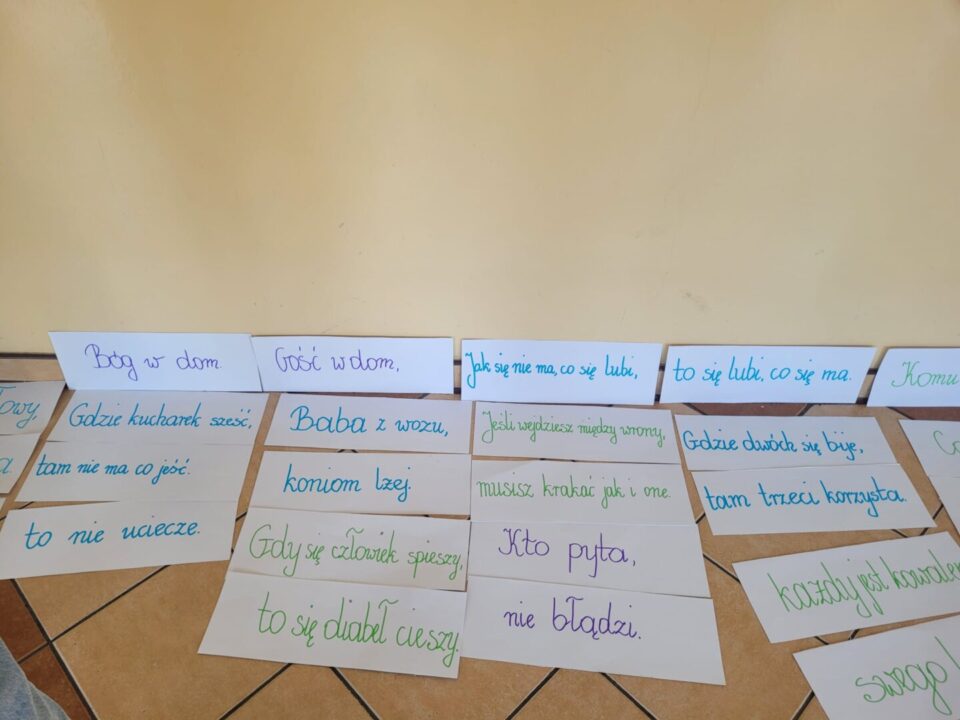 Bóg w dom.
Gość w dom,
Jak się nie ma, co się lubi,
to się lubi, co się ma.
Komu
Gdzie kucharek sześć,
tam nie ma co jeść.
to nie uciecze.
Baba z wozu,
koniom lżej.
Gdy się człowiek spieszy,
to się diabeł cieszy.
Jeśli wejdziesz między wrony,
musisz krakać jak i one.
Kto pyta,
nie błądzi.
Gdzie dwóch się bije,
tam trzeci korzysta.
Co
każdy jest kowalem
swego